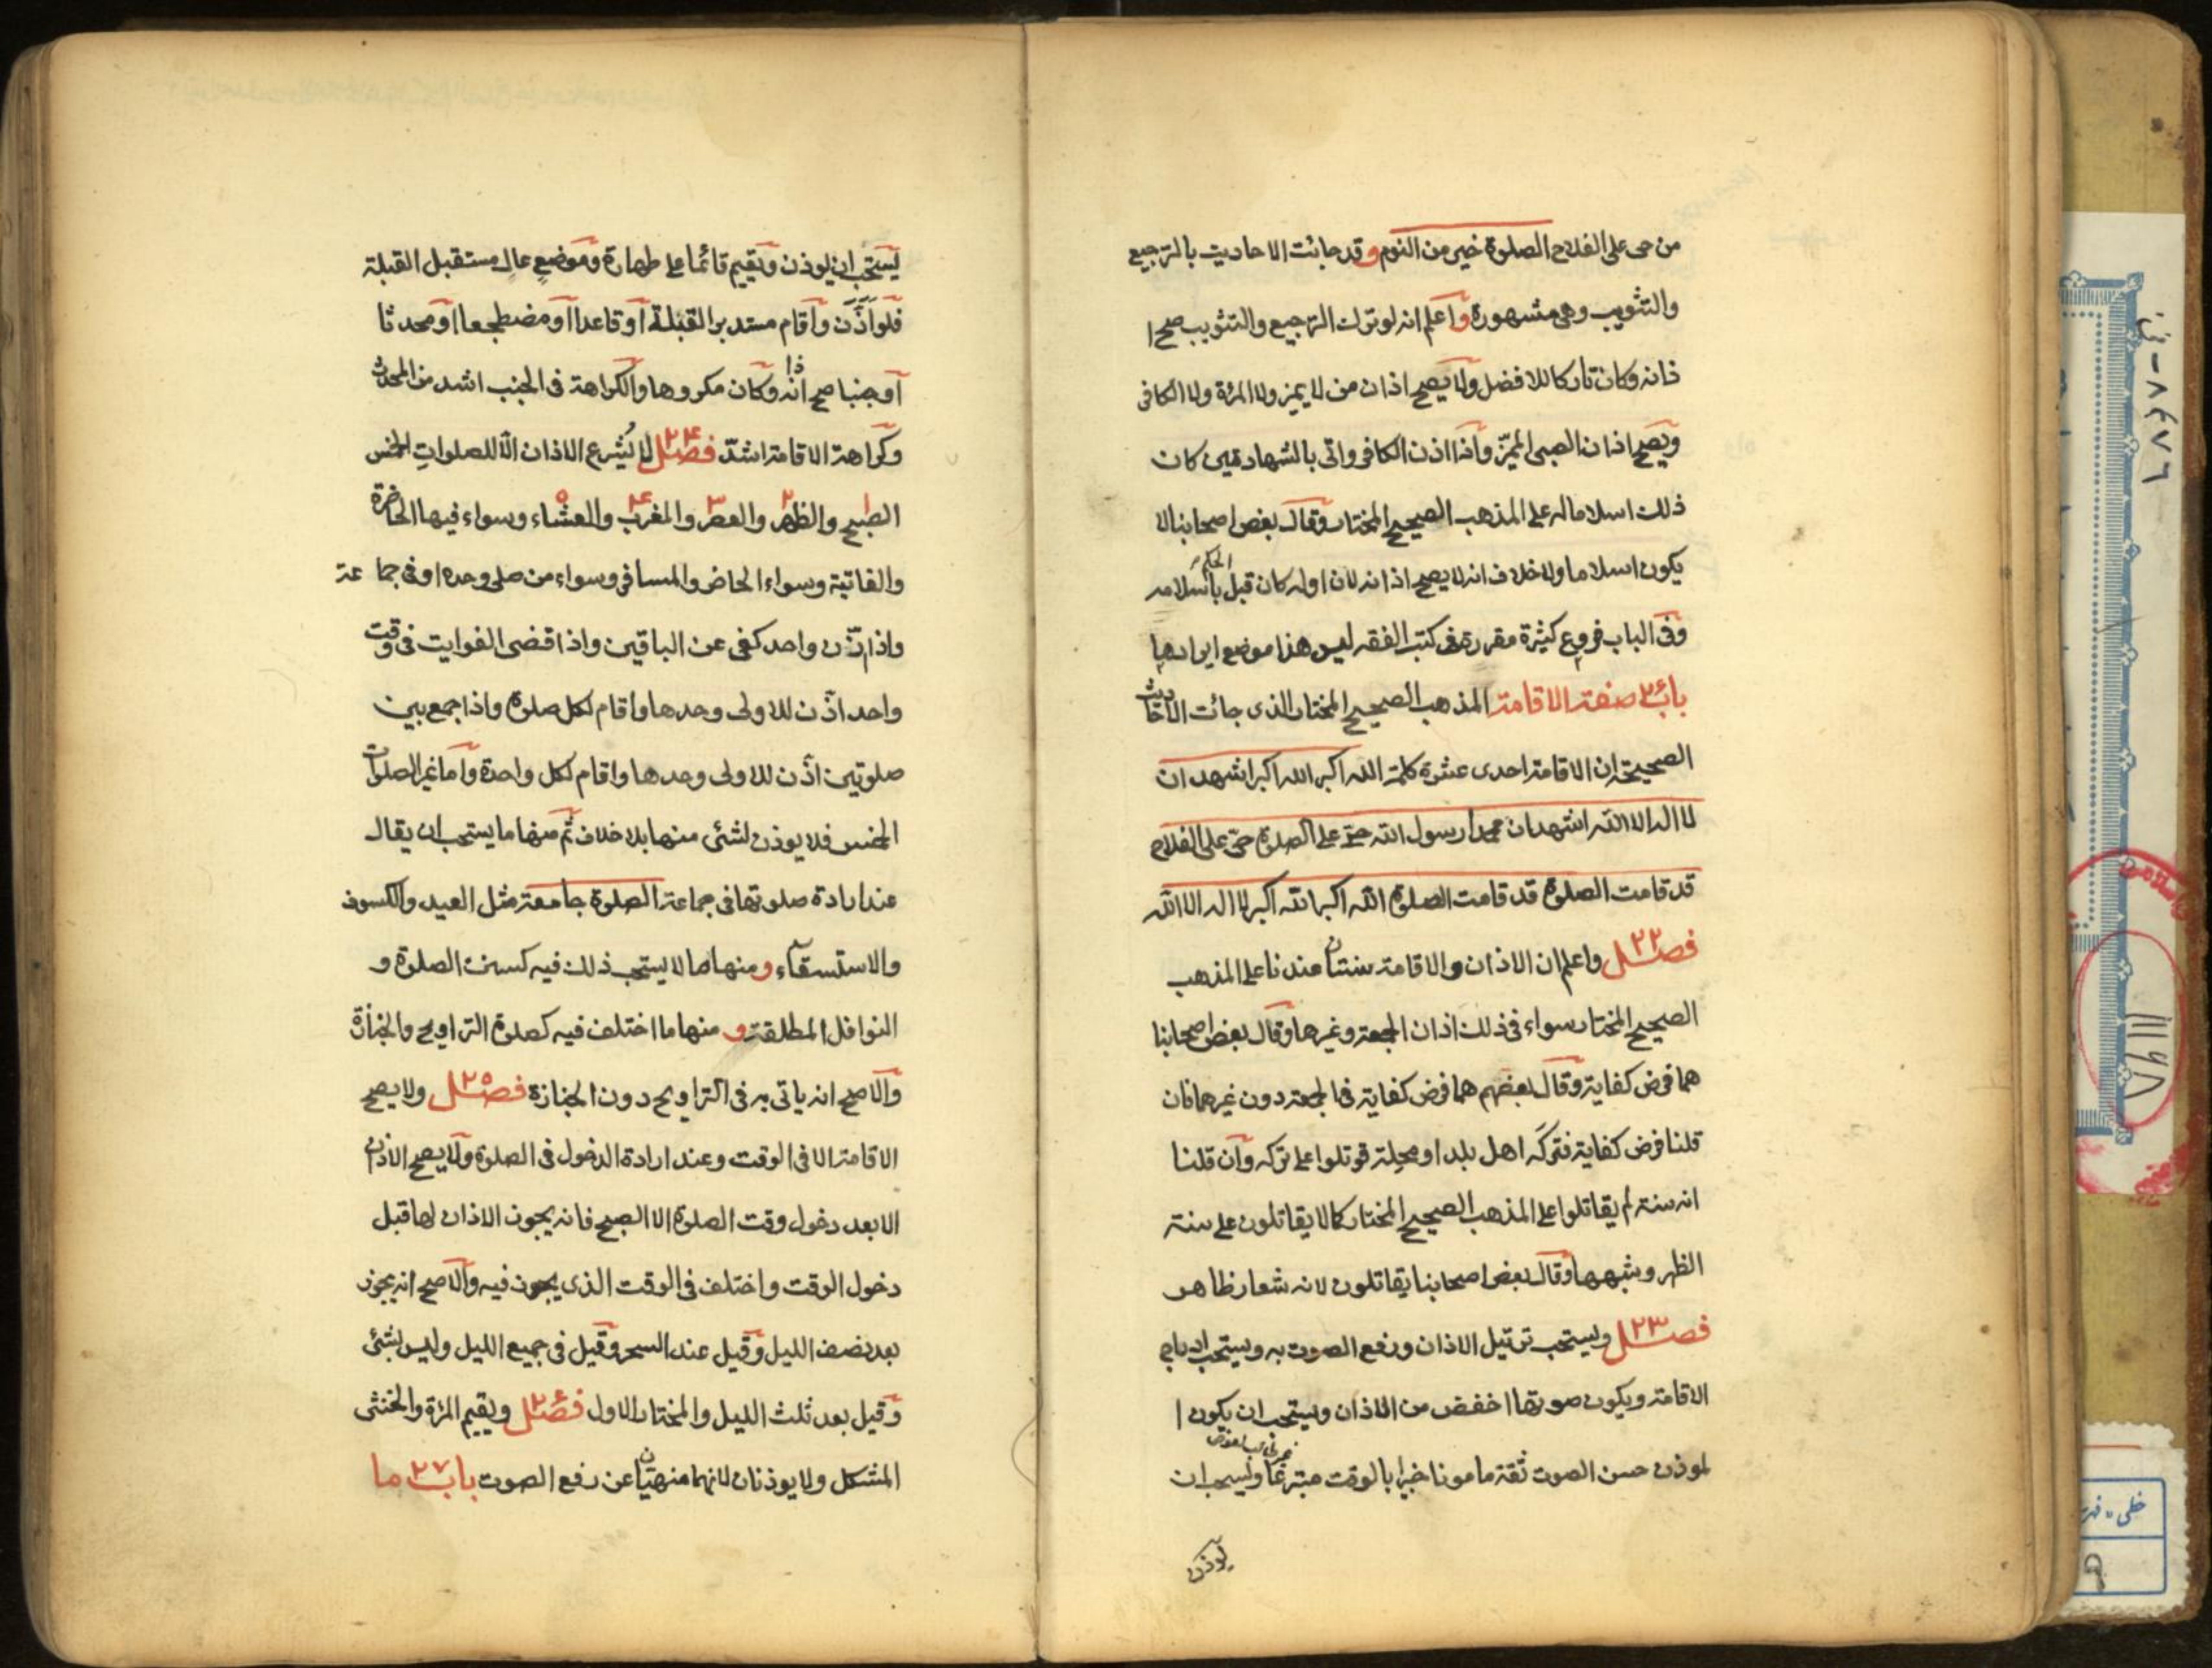 من حى على الفلاح الصلوة خير من النوم و قد جائت الاحاديث بالترجيع
والتثويب وهى مشهورة و اعلم انه لو ترك الترجيع والتثويب صح ا
ذانه وكان تاركا للافضل ولا يصح اذان من لا يميز ولا المرئة ولا الكافر
ويصح اذان الصبى المميّز وأذا اذن الكافر واتى بالشهادتين كان
ذلك اسلاما له على المذهب الصحيح المختار وقال بعض اصحابنا لا
يكون اسلاما ولا خلاف انه لا يصح اذانه لان اوله كان قبل الحكم باسلامه
وفى الباب فروع كثيرة مقررة فى كتب الفقه ليس هذا موضع ايرادها
باب ٢٤ صفة الاقامة المذهب الصحيح المختار الذى جائت الاحاديث
الصحيحة ان الاقامة احدى عشرة كلمة الله اكبر الله اكبر اشهد ان
لا اله الا الله اشهد ان محمدا رسول الله حىّ على الصلوة حىّ على الفلاح
قد قامت الصلوة قد قامت الصلوة الله اكبر الله اكبر لا اله الا الله
فصل ٢٢ واعلم ان الاذان والاقامة سنتان عندنا على المذهب
الصحيح المختار سواء فى ذلك اذان الجمعة وغيرها وقال بعض اصحابنا
هما فرض كفاية وقال بعضهم هما فرض كفاية فى الجمعة دون غيرها فان
قلنا فرض كفاية فتركه اهل بلد او محلة قوتلوا على تركه وآن قلنا
انه سنة لم يقاتلوا على المذهب الصحيح المختار كما لا يقاتلون على سنة
الظهر وشبهها وقال بعض اصحابنا يقاتلون لانه شعار ظاهر
فصل ٢٣ ويستحب ترتيل الاذان ورفع الصوت به ويستحب ادراج
الاقامة ويكون صوتها اخفض من الاذان ويستحب ان يكون ا
لموذن حسن الصوت ثقة مامونا خبيرا بالوقت متبرعا ويستحب ان
يوذن
يستحب ان يوذن ويقيم قائما على طهارة وموضع عال مستقبل القبلة
فلو اذّن وأقام مستدبر القبلة أو قاعدا أو مضطجعا أو محدثا
أو جنبا صح اذانه وكان مكروها والكراهة فى الجنب اشد من المحدث
وكراهة الاقامة اشدّ فصل ٢٤ لا يُشرع الاذان الّا للصلواتِ الخمس
الصبح ١ والظهر ٢ والعصر ٣ والمغرب ۴ والعشاء ۵ وسواء فيها الحاضرة
والفائتة وسواء الحاضر والمسافر وسواء من صلى وحده او فى جماعة
واذا اذّن واحد كفى عن الباقين واذا قضى الفوايت فى وقت
واحد اذّن للاولى وحدها وأقام لكل صلوة واذا جمع بين
صلوتين اذّن للاولى وحدها واقام لكل واحدة وآما غير الصلوات
الخمس فلا يوذن لشئى منها بلا خلاف ثم منها ما يستحب ان يقال
عند ارادة صلوتها فى جماعة الصلوة جامعة مثل العيد والكسوف
والاستسقآء و منها ما لا يستحب ذلك فيه كسنن الصلوة و
النوافل المطلقة و منها ما اختلف فيه كصلوة التراويح والجنازة
والاصح انه ياتى به فى التراويح دون الجنازة فصل ٢۵ ولا يصح
الاقامة الا فى الوقت وعند ارادة الدخول فى الصلوة ولا يصح الاذان
الا بعد دخول وقت الصلوة الا الصبح فانه يجوز الاذان لها قبل
دخول الوقت واختلف فى الوقت الذى يجوز فيه والاصح انه يجوز
بعد نصف الليل وقيل عند السحر وقيل فى جميع الليل وليس بشئى
وقيل بعد ثلث الليل والمختار الاول فصل ٢٦ ويقيم المرئة والخنثى
المشكل ولا يوذنان لانهما منهيّان عن رفع الصوت باب ٢٧ ما